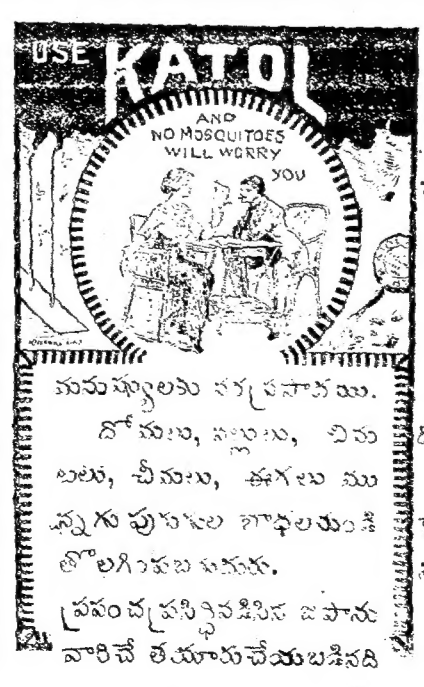 USE KATOL
AND
NO MOSQUITOES
WILL WORRY
YOU
మనుష్యులకు వరప్రసాదము.
దోమలు, నల్లులు, చిమ
టలు, చీమలు, ఈగలు ము
న్నగు పురుగుల బాధలనుండి
తొలగింపబడుదురు.
ప్రపంచ ప్రసిద్ధివడసిన జపాను
వారిచే తయారుచేయబడినది